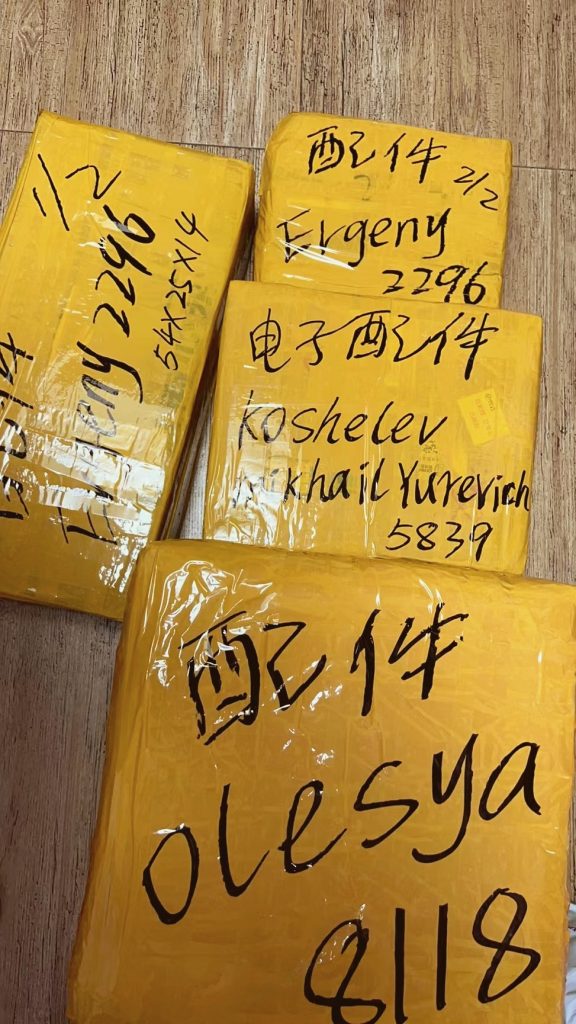 1/2
2296
54X25X14
配件 2/2
Ergeny
2296
电子配件
Koshelev
Mikhail Yurevich
5839
配件
Olesya
8118